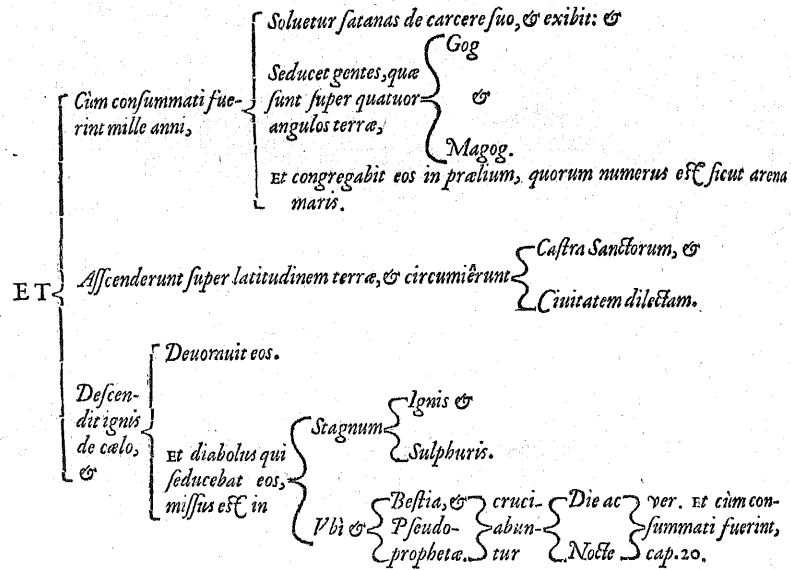 ET
Cùm conſummati fue-
rint mille anni,
Soluetur ſatanas de carcere ſuo, & exibit: &
Seducet gentes, quæ
ſunt ſuper quatuor
angulos terræ,
Gog
&
Magog.
Et congregabit eos in prælium, quorum numerus eſt ſicut arena
maris.
Aſſcenderunt ſuper latitudinem terræ, & circumiêrunt
Caſtra Sanctorum, &
Ciuitatem dilectam.
Deſcen-
dit ignis
de cælo,
&
Deuorauit eos.
Et diabolus qui
ſeducebat eos,
miſſus eſt in
Stagnum
Ignis &
Sulphuris.
Vbì &
Beſtia, &
Pſeudo-
prophetæ.
cruci-
abun-
tur
Die ac
Nocte
ver. Et cùm con-
ſummati fuerint,
cap.20.